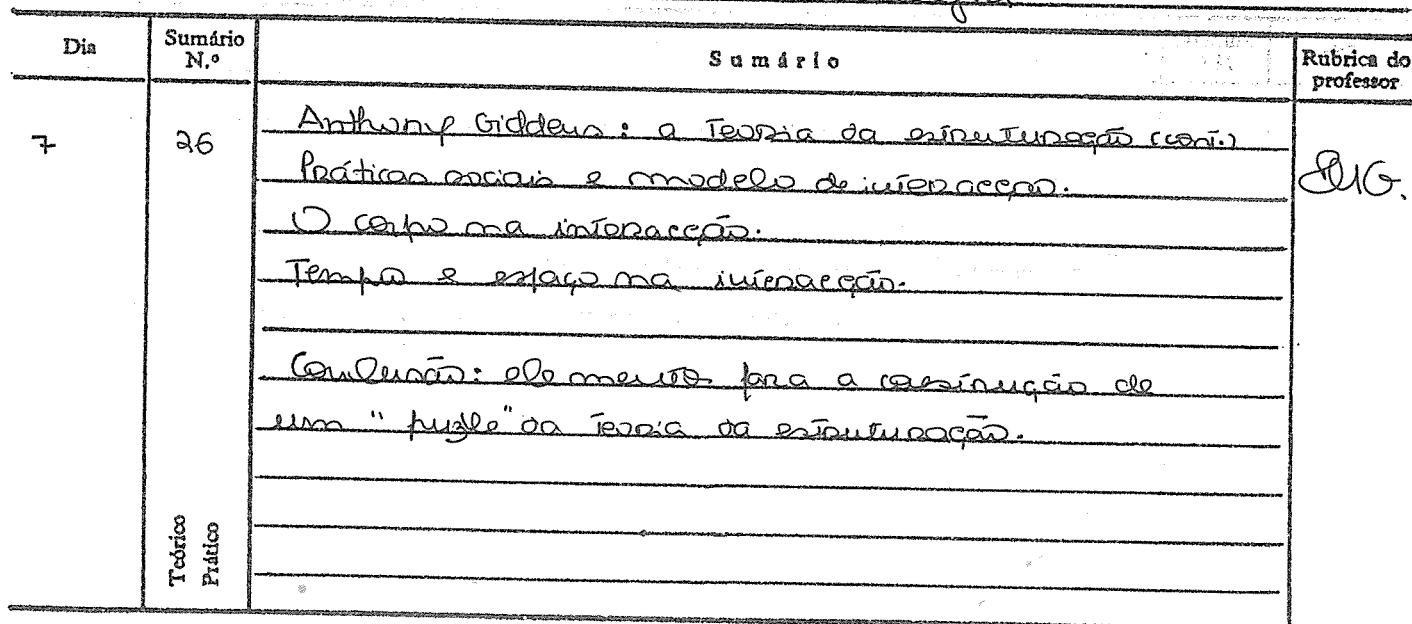 Dia
Sumário N.º
Sumário
Rubrica do professor
7
26
Anthony Giddens: a Teoria da estruturação (cont.)
Práticas sociais e modelo de interacção.
O corpo na interacção.
Tempo e espaço na interacção.
Conclusão: elementos para a construção de
um "puzle" da teoria da estruturação.
Teórico
Prático